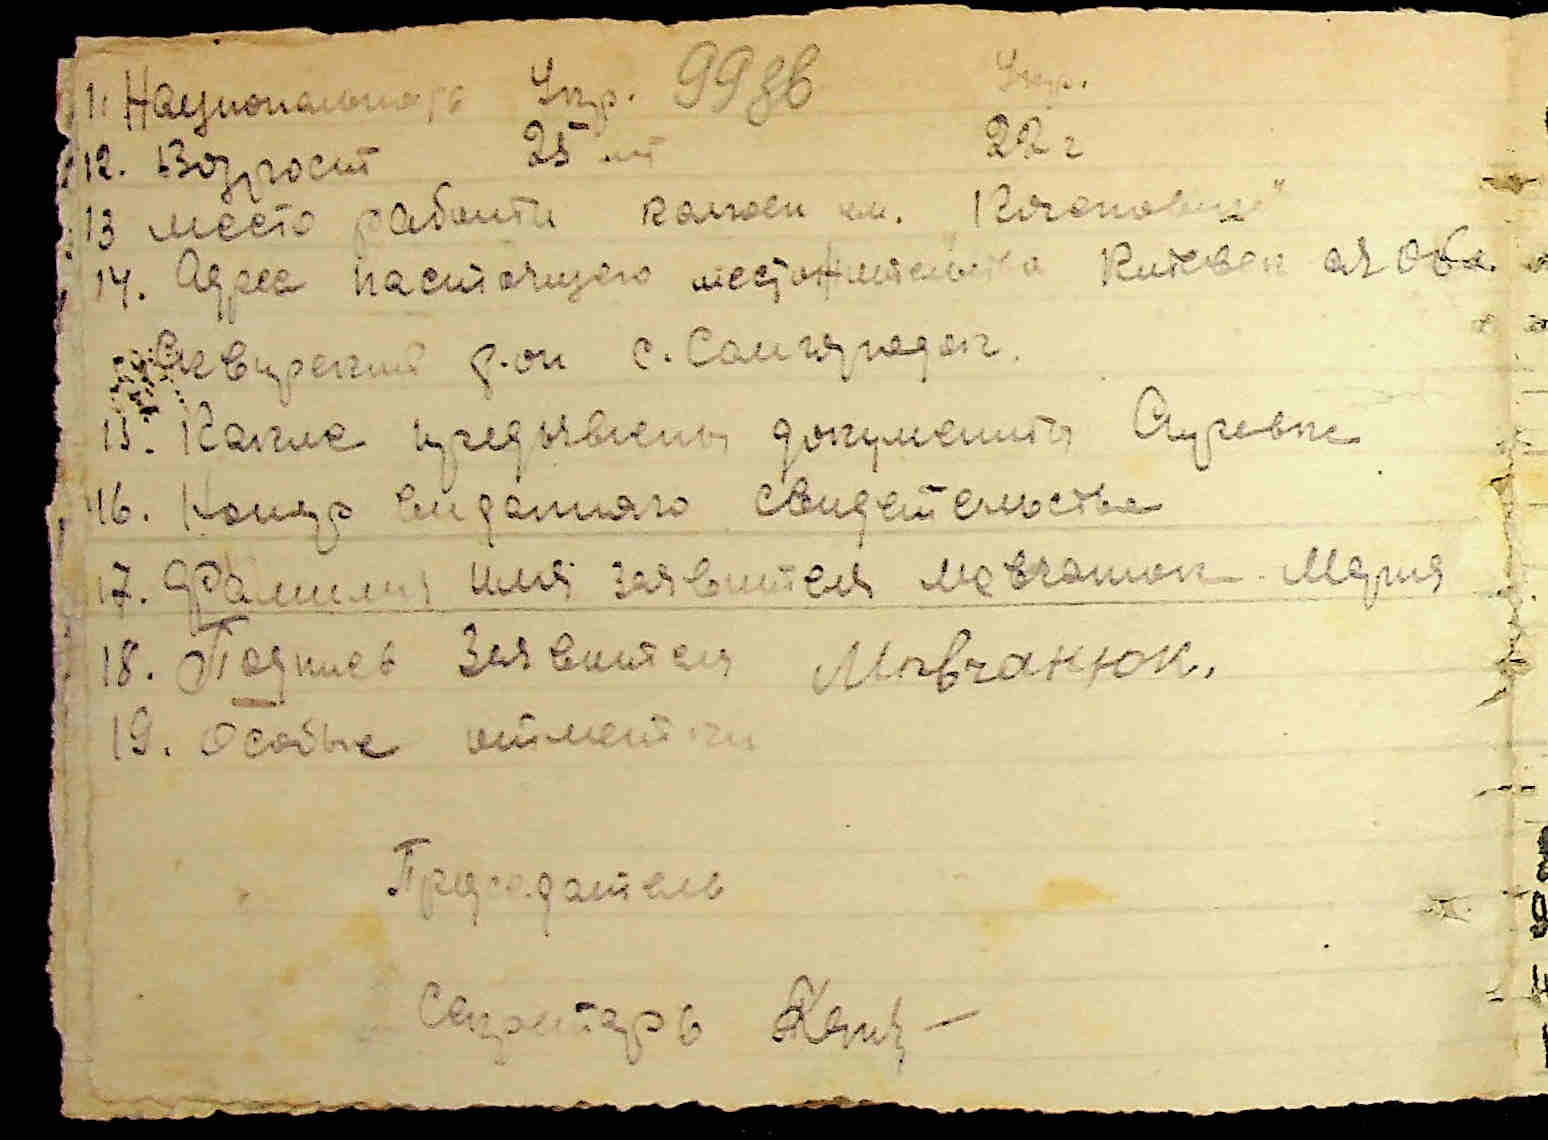 11. Националность Укр. 99зв Укр.
12. Возрост 25 лет 22 г
13 место работи колхоз им. "
14. Адрес настоящего местожительства Киевская Обл.
Сквирский р-он с. Самгородок.
15. Какие предъявлены документи Справки
16. Номер виданного свидетельства
17. Фамилия имя заявителя Мовчанюк Мария
18. Подпись Заявителя Мовчанюк.
19. Особые отметки
Председатель
Секретарь